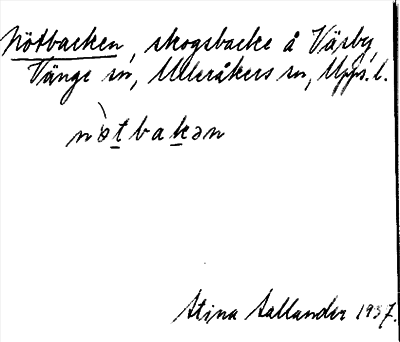 Nötbacken, skogsbacke å Väsby,
Vänge sn, Ulleråkers hd, Upps. l.
nö̀tbakən
Stina Sallander 1937.